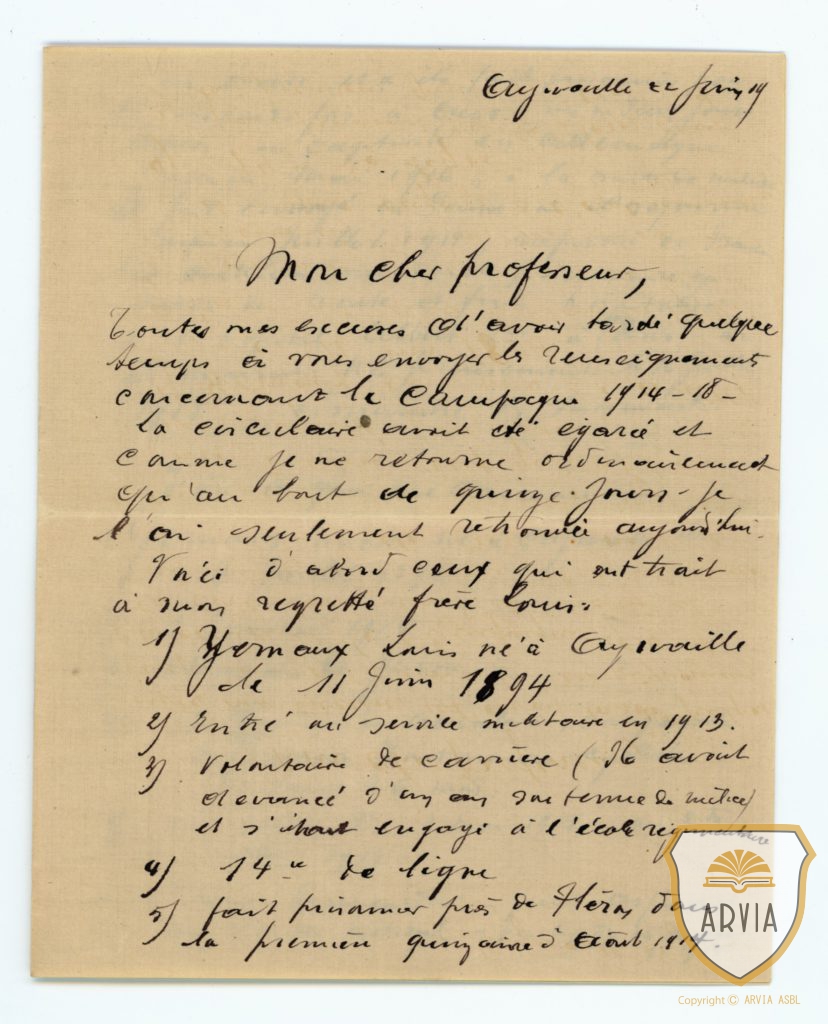 Aywaille 22 Juin 19
Mon cher professeur,
Toutes mes excuses d'avoir tardé quelque
temps à vous envoyer les renseignements
concernant la campagne 1914-18-
la circulaire avait été égarée et
comme je ne retourne ordinairement
qu'au bout de quinze jours - je
l'ai seulement retrouvée aujourd'hui.
Voici d'abord ceux qui ont trait
à mon regretté frère Louis:
1) Yernaux Louis né à Aywaille
le 11 Juin 1894
2) Entré au service militaire en 1913.
3) Volontaire de carrière (Il avait
devancé d'un an son terme de milice)
et s'était engagé à l'école régimentaire
4) 14e de ligne
5) fait prisonnier près de Fléron dans
la première quinzaine d'Août 1914.
ARVIA
Copyright © ARVIA ASBL